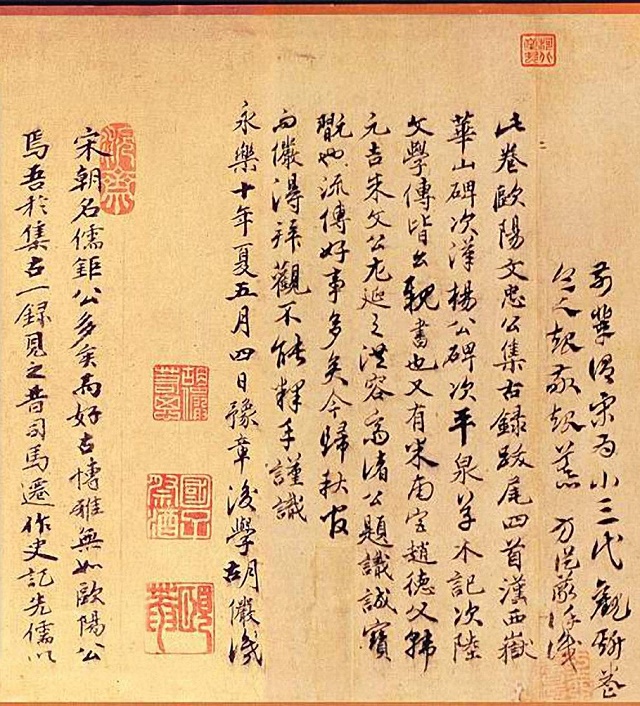 前輩謂宋为小三代觀斯卷
令人起敬起慕 方從義
此卷歐陽文忠公集古錄跋尾四首漢西嶽
華山碑次漢楊公碑次平泉草木記次陸
文學傳皆公親書也又有米南宮趙德父韓
元吉朱文公尤延之洪容齋諸公題識誠寶
翫也流傳好事多矣今歸秋官
而儼得拜觀不能釋手謹識
永樂十年夏五月四日豫章後學胡儼識
胡儼若思
國子祭酒
頤菴
宋朝名儒鉅公多矣而好古博雅無如歐陽公
焉吾於集古一錄見之昔司馬遷作史記先儒以